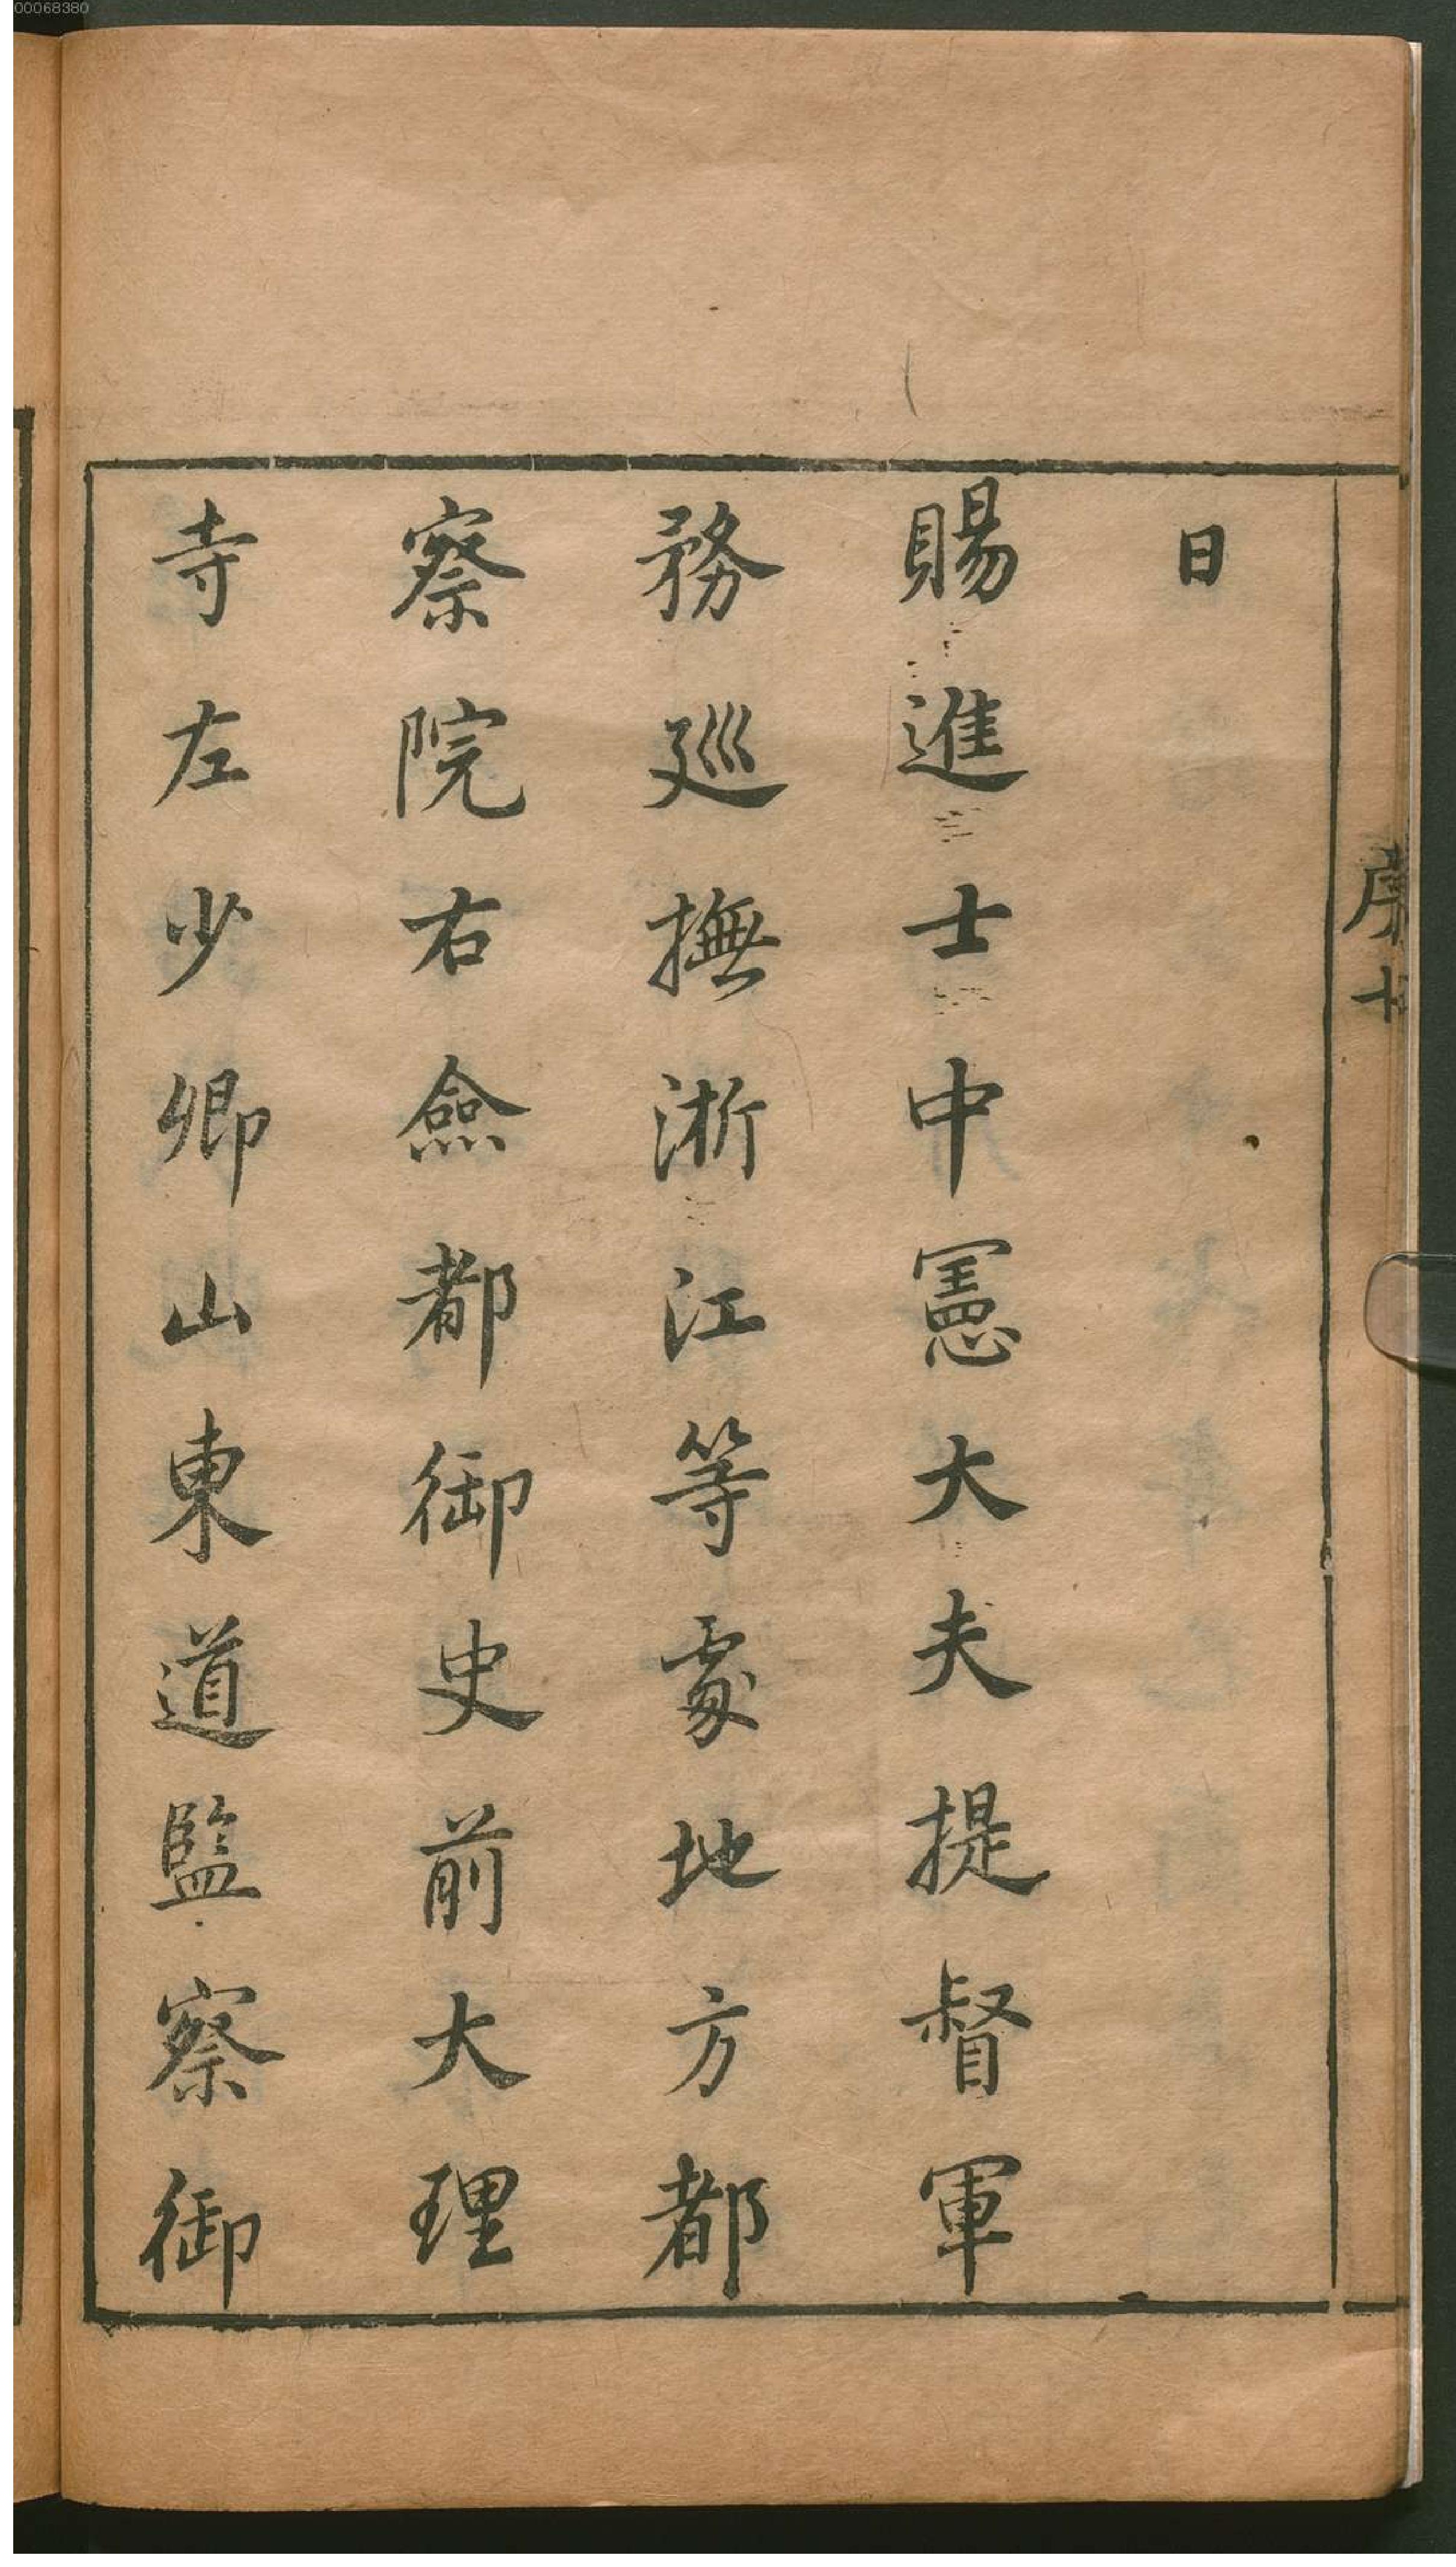 00068380
日
賜進士中憲大夫提督軍
務廵撫淅江等處地方都
察院右僉都御史前大理
寺左少卿山東道監察御